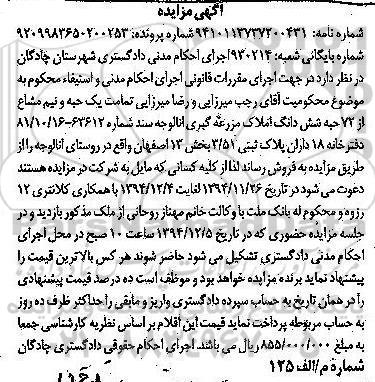 آگهی مزایده
شماره نامه: ۹۴۱۰۱۱۳۷۳۷۲۰۰۴۳۱ شماره پرونده: ۹۲۰۹۹۸۳۶۵۰۲۰۰۲۵۳
شماره بایگانی شعبه: ۹۳۰۲۱۴ اجرای احکام مدنی دادگستری شهرستان چادگان
در نظر دارد در جهت اجرای مقررات قانونی اجرای احکام مدنی و استیفاء محکوم به
موضوع محکومیت آقای رجب میرزایی و رضا میرزایی تمامت یک حبه و نیم مشاع
از ۷۲ حبه شش دانگ املاک مزرعه گبری انالوجه سند شماره ۶۳۶۱۲-۸۱/۱۰/۱۶
دفترخانه ۱۸ داران پلاک ثبتی ۳/۵۱ بخش ۱۳ اصفهان واقع در روستای آنالوجه را از
طریق مزایده به فروش رساند لذا از کلیه کسانی که مایل به شرکت در مزایده هستند
دعوت می شود در تاریخ ۱۳۹۴/۱۱/۲۶ لغایت ۱۳۹۴/۱۲/۴ با همکاری کلانتری ۱۲
رزوه و محکوم له بانک ملت با وکالت خانم مهناز روحانی از ملک مذکور بازدید و در
جلسه مزایده حضوری که در تاریخ ۱۳۹۴/۱۲/۵ ساعت ۱۰ صبح در محل اجرای
احکام مدنی دادگستری تشکیل می شود حاضر شوند هر کس بالاترین قیمت را
پیشنهاد نماید برنده مزایده خواهد بود و موظف است ده درصد قیمت پیشنهادی
را در همان تاریخ به حساب سپرده دادگستری واریز و مابقی را حداکثر ظرف ده روز
به حساب مربوطه پرداخت نماید قیمت این اقلام بر اساس نظریه کارشناسی جمعا
به مبلغ ۸۵۵/۰۰۰/۰۰۰ ریال می باشد. اجرای احکام حقوقی دادگستری چادگان
شماره م/الف ۱۲۵